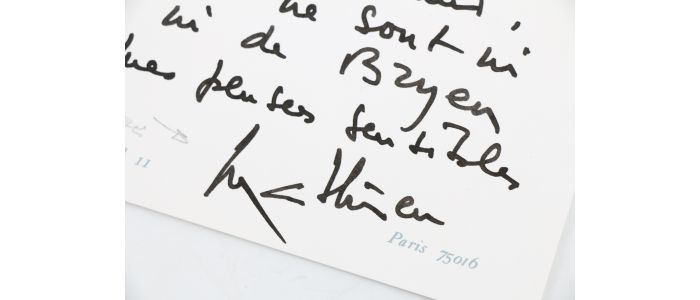 ne sont ni
ni de Bryen
mes pensées sensibles
Mathieu
11
Paris 75016